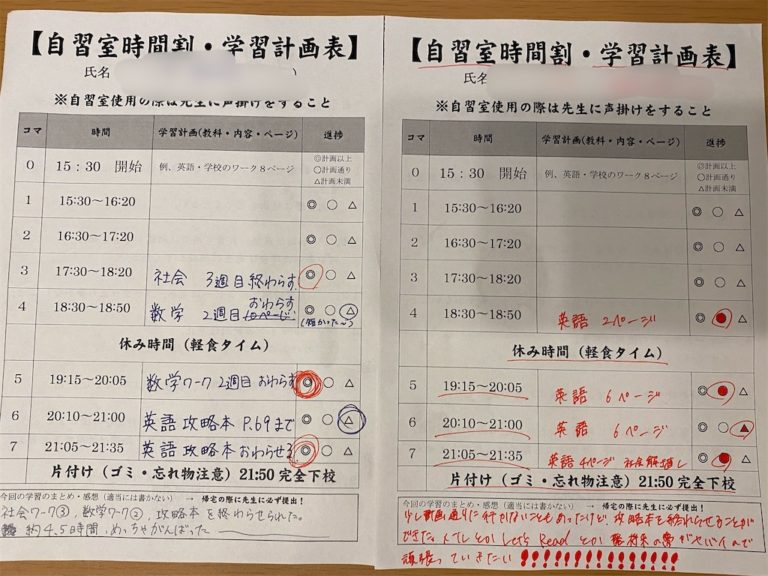 【自習室時間割・学習計画表】
氏名
※自習室使用の際は先生に声掛けをすること
コマ 時間 学習計画(教科・内容・ページ) 進捗
0 15:30 開始 例、英語・学校のワーク8ページ ◎計画以上 〇計画通り △計画未満
1 15:30～16:20 ◎ 〇 △
2 16:30～17:20 ◎ 〇 △
3 17:30～18:20 社会 3週目終わらす ◎ 〇 △
4 18:30～18:50 数学 2週目 おわらす ◎ 〇 △
休み時間（軽食タイム）
5 19:15～20:05 数学ワーク2週目おわらす ◎ 〇 △
6 20:10～21:00 英語攻略本 P.69まで ◎ 〇 △
7 21:05～21:35 英語攻略本おわらせる ◎ 〇 △
片付け（ゴミ・忘れ物注意）21:50 完全下校
今回の学習のまとめ・感想（適当には書かない） → 帰宅の際に先生に必ず提出！
社会ワーク③, 数学ワーク②, 攻略本を終わらせられた。
約4.5時間, めっちゃがんばった
【自習室時間割・学習計画表】
氏名
※自習室使用の際は先生に声掛けをすること
コマ 時間 学習計画(教科・内容・ページ) 進捗
0 15:30 開始 例、英語・学校のワーク8ページ ◎計画以上 〇計画通り △計画未満
1 15:30～16:20 ◎ 〇 △
2 16:30～17:20 ◎ 〇 △
3 17:30～18:20 ◎ 〇 △
4 18:30～18:50 英語 2ページ ◎ ● △
休み時間（軽食タイム）
5 19:15～20:05 英語 6ページ ◎ ● △
6 20:10～21:00 英語 6ページ ◎ 〇 ▲
7 21:05～21:35 英語4ページ 社会解直し ◎ ● △
片付け（ゴミ・忘れ物注意）21:50 完全下校
今回の学習のまとめ・感想（適当には書かない） → 帰宅の際に先生に必ず提出！
少し計画通りに行かないこともあったけど, 攻略本を終わらせることが
できた。 Let's Read とか がヤバイので
頑張っていきたい!!!!!!!!!!!!!!!!